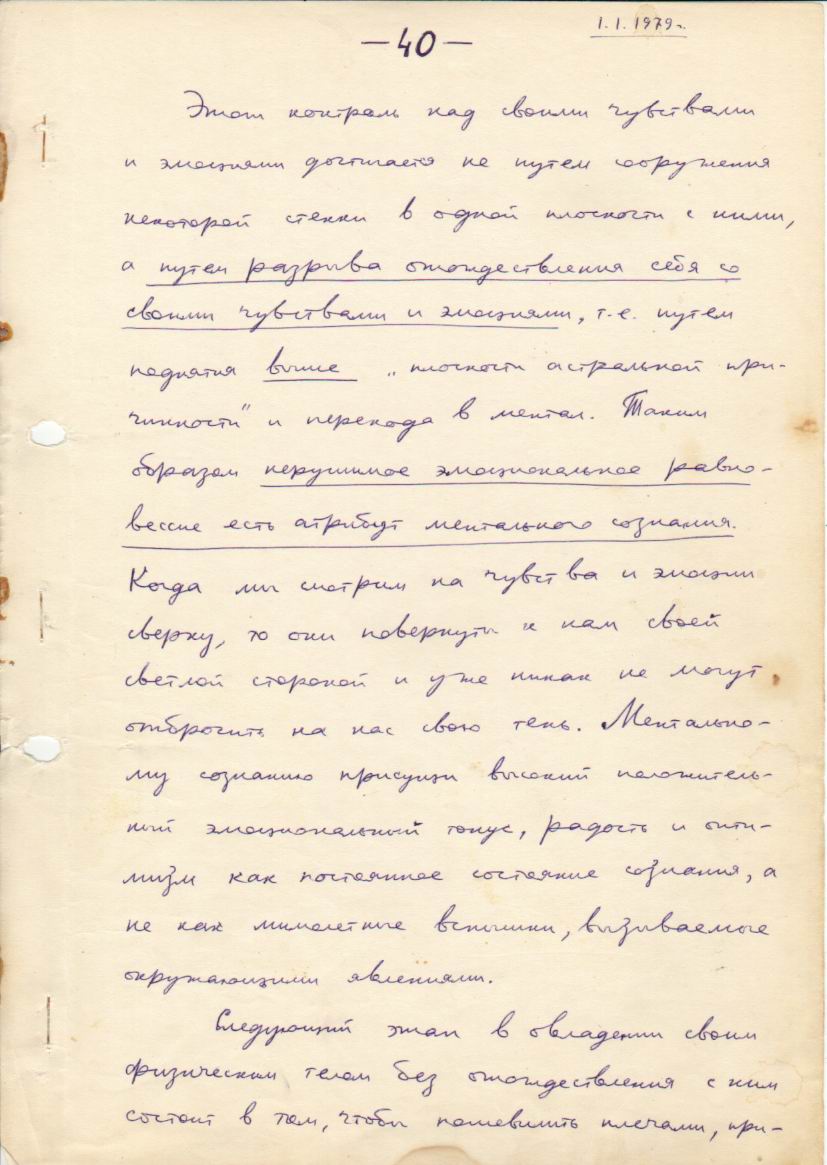 1.1.1979г.
— 40 —
Этот контроль над своими чувствами
и эмоциями достигается не путем сооружения
некоторой стенки в одной плоскости с ними,
а путем разрыва отождествления себя со
своими чувствами и эмоциями, т.е. путем
поднятия выше „плоскости астральной при-
чинности" и перехода в ментал. Таким
образом нерушимое эмоциональное равно-
весие есть атрибут ментального сознания.
Когда мы смотрим на чувства и эмоции
сверху, то они повернуты к нам своей
светлой стороной и уже никак не могут
отбросить на нас свою тень. Ментально-
му сознанию присущи высокий положитель-
ный эмоциональный тонус, радость и опти-
мизм как постоянное состояние сознания, а
не как мимолетные вспышки, вызываемые
окружающими явлениями.
Следующий этап в овладении своим
физическим телом без отождествления с ним
состоит в том, чтобы пошевелить плечами, при-